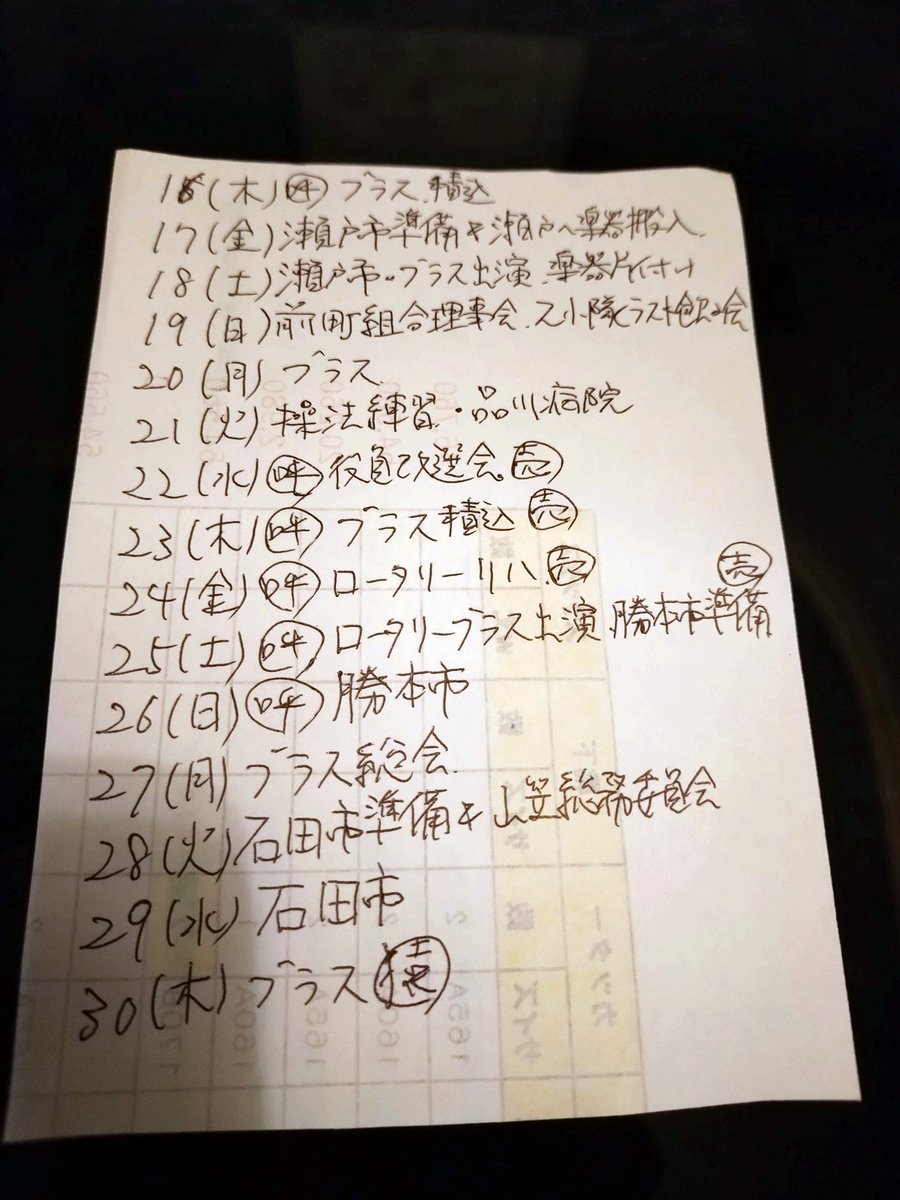 16(木)㊕ ブラス.積込
17(金)瀬戸市準備&瀬戸へ楽器搬入.
18(土)瀬戸市.ブラス出演.楽器片付け
19(日)前町組合理事会.ス小隊ラスト飲み会
20(月)ブラス
21(火)操法練習・品川病院
22(水)呼 役員改選会.売
23(木)呼 ブラス積込 売
24(金)呼 ロータリーリハ.売
25(土)呼 ロータリーブラス出演 勝本市準備 売
26(日)呼 勝本市
27(月)ブラス総会.
28(火)石田市準備&山笠総務委員会
29(水)石田市
30(木)ブラス 猿